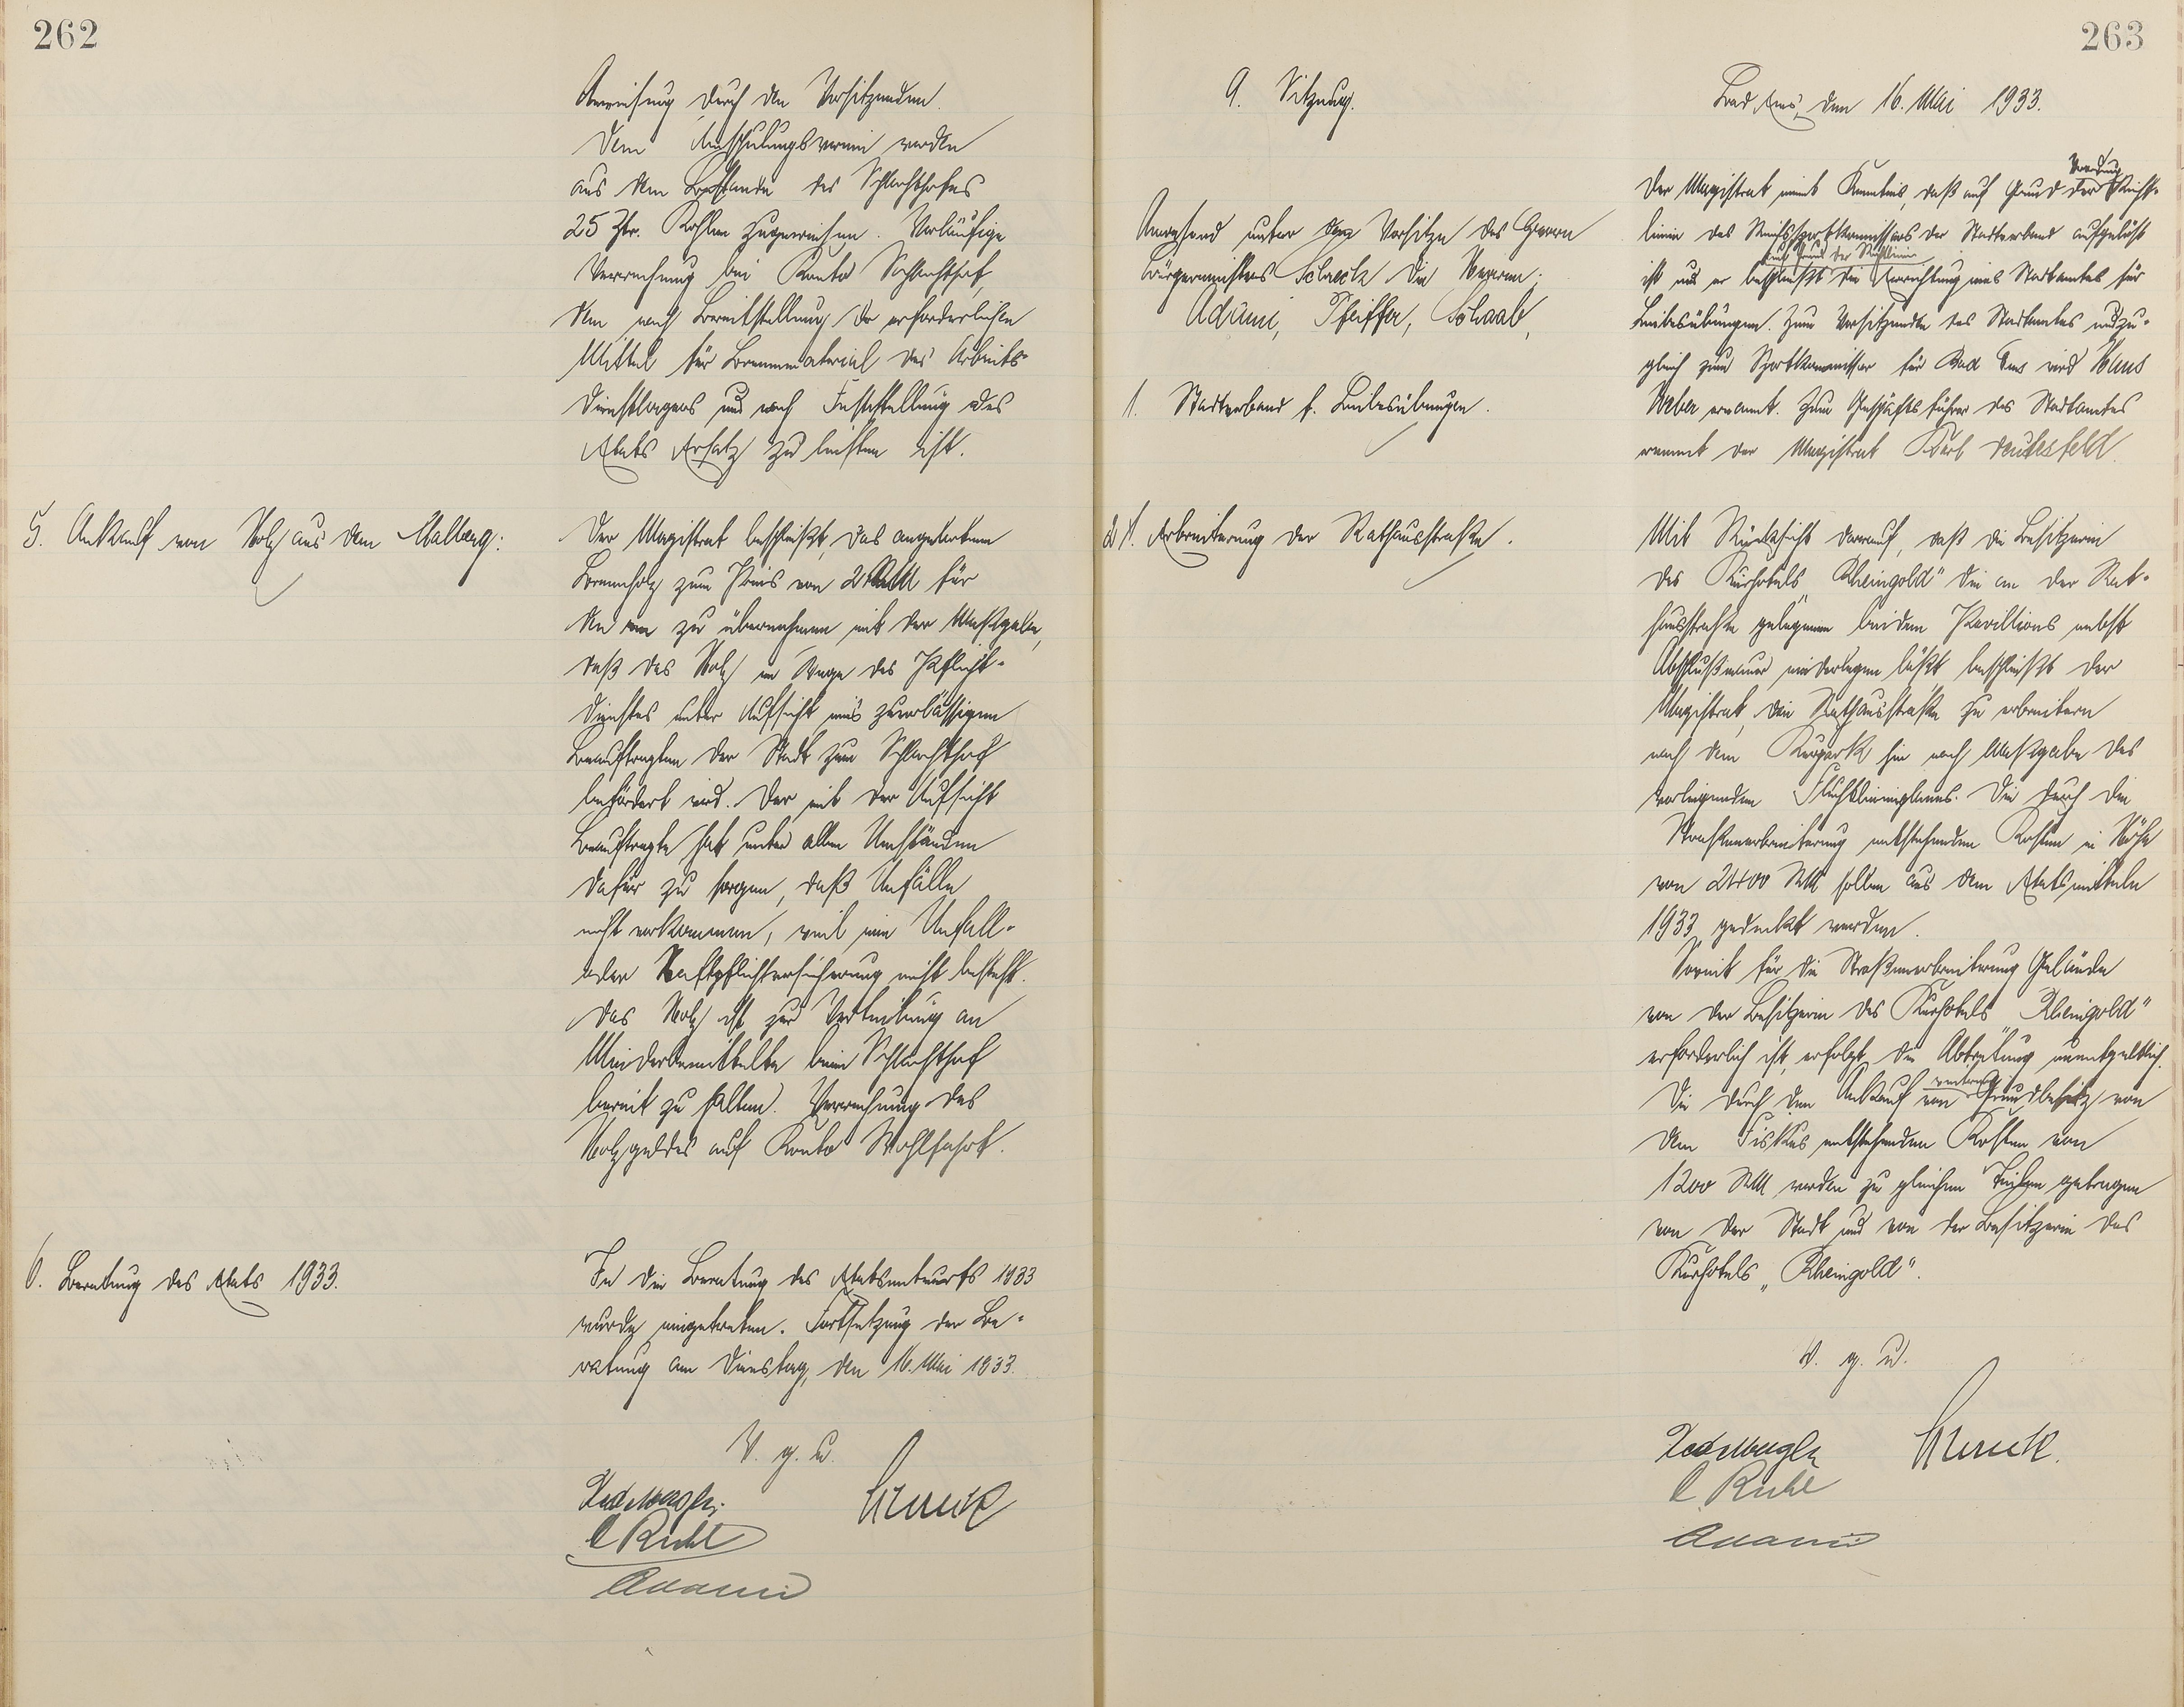 262
Anweisung durch den Vorsitzenden.
Dem Umschulungsverein werden
aus dem Bestande des Schlachthofes
25 Ztr. Kohlen zugewiesen. Vorläufige
Verrechnung bei Konto Schlachthof,
dem nach Bereitstellung der erforderlichen
Mittel für Brennmaterial des Arbeits-
dienstlagers und nach Feststellung des
Etats Ersatz zu leisten ist.
5. Ankauf von Holz aus dem Malberg:
Der Magistrat beschließt, das angebotene
Brennholz zum Preis von RM für
den rm zu übernehmen mit der Maßgabe,
daß das Holz im Wege des Pflicht-
dienstes unter Aufsicht eines zuverlässigen
Beauftragten der Stadt zum Schlachthof
befördert wird. Der mit der Aufsicht
Beauftragte hat unter allen Umständen
dafür zu sorgen, daß Unfälle
nicht vorkommen, weil eine Unfall-
oder Haftpflichtversicherung nicht besteht.
Das Holz ist zur Verteilung an
Minderbemittelte beim Schlachthof
bereit zu halten. Verrechnung des
Holzgeldes auf Konto Wohlfahrt.
6. Beratung des Etats 1933.
In die Beratung des Etatsentwurfs 1933
wurde eingetreten. Fortsetzung der Be-
ratung am Dienstag, den 16. Mai 1933.
V. g. u.
Schreck
C Ruhl
Adami
263
9. Sitzung.
Bad Ems, den 16. Mai 1933.
Anwesend unter dem Vorsitze des Herrn
Bürgermeisters Schreck die Herren:
Adami, Pfeiffer, Schaab,
1. Stadtverband f. Leibesübungen.
Der Magistrat nimmt Kenntnis, daß auf Grund der Richt-
linien des Reichssportkommissars der Stadtverband aufgelöst
auf Grund der Richtlinien
ist und er beschließt die Errichtung eines Stadtamtes für
Leibesübungen. Zum Vorsitzenden des Stadtamtes und zu-
gleich zum Sportkommissar für Bad Ems wird Hans
Weber ernannt. Zum Geschäftsführer des Stadtamtes
ernennt der Magistrat Karl Deutesfeld.
2. Erbreiterung der Rathausstraße.
Mit Rücksicht darauf, daß die Besitzerin
des Kurhotels „Rheingold" die an der Rat-
hausstraße gelegenen beiden Pavillions nebst
Abschlußmauer niederlegen läßt, beschließt der
Magistrat, die Rathausstraße zu erbreitern
nach dem Kurpark hin nach Maßgabe des
vorliegenden Fluchtlinienplanes. Die durch die
Straßenerbreiterung entstehenden Kosten in Höhe
von 2400 RM sollen aus den Etatsmitteln
1933 gedeckt werden.
Soweit für die Straßenerbreiterung Gelände
von der Besitzerin des Kurhotels „Rheingold"
erforderlich ist, erfolgt die Abtretung unentgeltlich.
Die durch den Ankauf von Grundbesitz von
dem Fiskus entstehenden Kosten von
1200 RM werden zu gleichen Teilen getragen
von der Stadt und von der Besitzerin des
Kurhotels „Rheingold".
V. g. u.
Schreck.
C. Ruhl
Adami